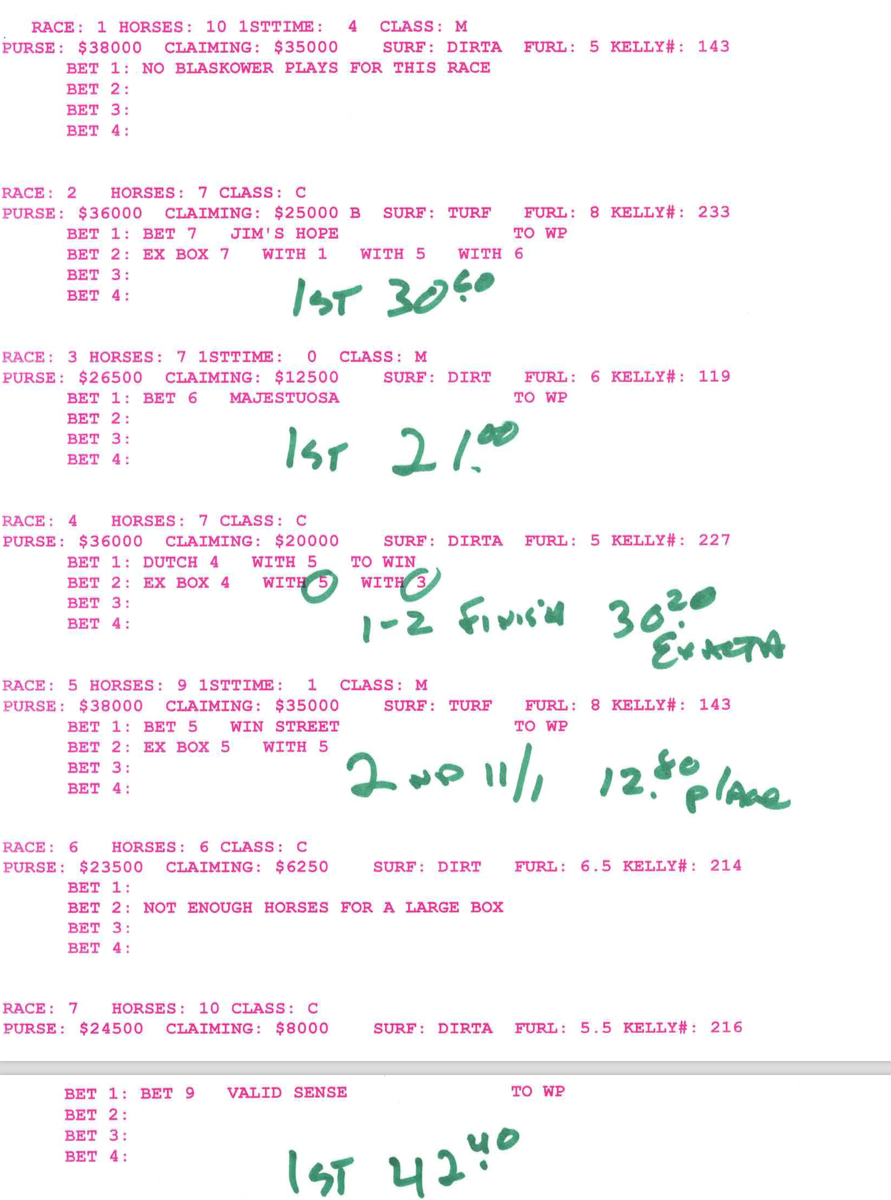 RACE: 1 HORSES: 10 1STTIME: 4 CLASS: M
PURSE: $38000 CLAIMING: $35000 SURF: DIRTA FURL: 5 KELLY#: 143
BET 1: NO BLASKOWER PLAYS FOR THIS RACE
BET 2:
BET 3:
BET 4:
RACE: 2 HORSES: 7 CLASS: C
PURSE: $36000 CLAIMING: $25000 B SURF: TURF FURL: 8 KELLY#: 233
BET 1: BET 7 JIM'S HOPE TO WP
BET 2: EX BOX 7 WITH 1 WITH 5 WITH 6
BET 3:
BET 4:
1ST 30.60
RACE: 3 HORSES: 7 1STTIME: 0 CLASS: M
PURSE: $26500 CLAIMING: $12500 SURF: DIRT FURL: 6 KELLY#: 119
BET 1: BET 6 MAJESTUOSA TO WP
BET 2:
BET 3:
BET 4:
1ST 21.00
RACE: 4 HORSES: 7 CLASS: C
PURSE: $36000 CLAIMING: $20000 SURF: DIRTA FURL: 5 KELLY#: 227
BET 1: DUTCH 4 WITH 5 TO WIN
BET 2: EX BOX 4 WITH 5 WITH 3
BET 3:
BET 4:
1-2 FINISH 30.20
EXACTA
RACE: 5 HORSES: 9 1STTIME: 1 CLASS: M
PURSE: $38000 CLAIMING: $35000 SURF: TURF FURL: 8 KELLY#: 143
BET 1: BET 5 WIN STREET TO WP
BET 2: EX BOX 5 WITH 5
BET 3:
BET 4:
2ND 11/1 12.80 PLACE
RACE: 6 HORSES: 6 CLASS: C
PURSE: $23500 CLAIMING: $6250 SURF: DIRT FURL: 6.5 KELLY#: 214
BET 1:
BET 2: NOT ENOUGH HORSES FOR A LARGE BOX
BET 3:
BET 4:
RACE: 7 HORSES: 10 CLASS: C
PURSE: $24500 CLAIMING: $8000 SURF: DIRTA FURL: 5.5 KELLY#: 216
BET 1: BET 9 VALID SENSE TO WP
BET 2:
BET 3:
BET 4:
1ST 42.40